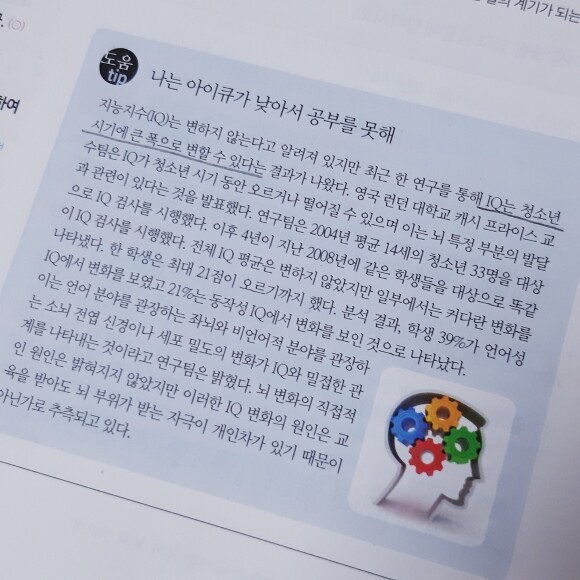 계기가 되는
하여
도움
tip
나는 아이큐가 낮아서 공부를 못해
지능지수(IQ)는 변하지 않는다고 알려져 있지만 최근 한 연구를 통해 IQ는 청소년
시기에 큰 폭으로 변할 수 있다는 결과가 나왔다. 영국 런던 대학교 캐시 프라이스 교
수팀은 IQ가 청소년 시기 동안 오르거나 떨어질 수 있으며 이는 뇌 특정 부분의 발달
과 관련이 있다는 것을 발표했다. 연구팀은 2004년 평균 14세의 청소년 33명을 대상
으로 IQ 검사를 시행했다. 이후 4년이 지난 2008년에 같은 학생들을 대상으로 똑같
이 IQ 검사를 시행했다. 전체 IQ 평균은 변하지 않았지만 일부에서는 커다란 변화를
나타냈다. 한 학생은 최대 21점이 오르기까지 했다. 분석 결과, 학생 39%가 언어성
IQ에서 변화를 보였고 21%는 동작성 IQ에서 변화를 보인 것으로 나타났다.
이는 언어 분야를 관장하는 좌뇌와 비언어적 분야를 관장하
는 소뇌 전엽 신경이나 세포 밀도의 변화가 IQ와 밀접한 관
계를 나타내는 것이라고 연구팀은 밝혔다. 뇌 변화의 직접적
인 원인은 밝혀지지 않았지만 이러한 IQ 변화의 원인은 교
육을 받아도 뇌 부위가 받는 자극이 개인차가 있기 때문이
아닌가로 추측되고 있다.